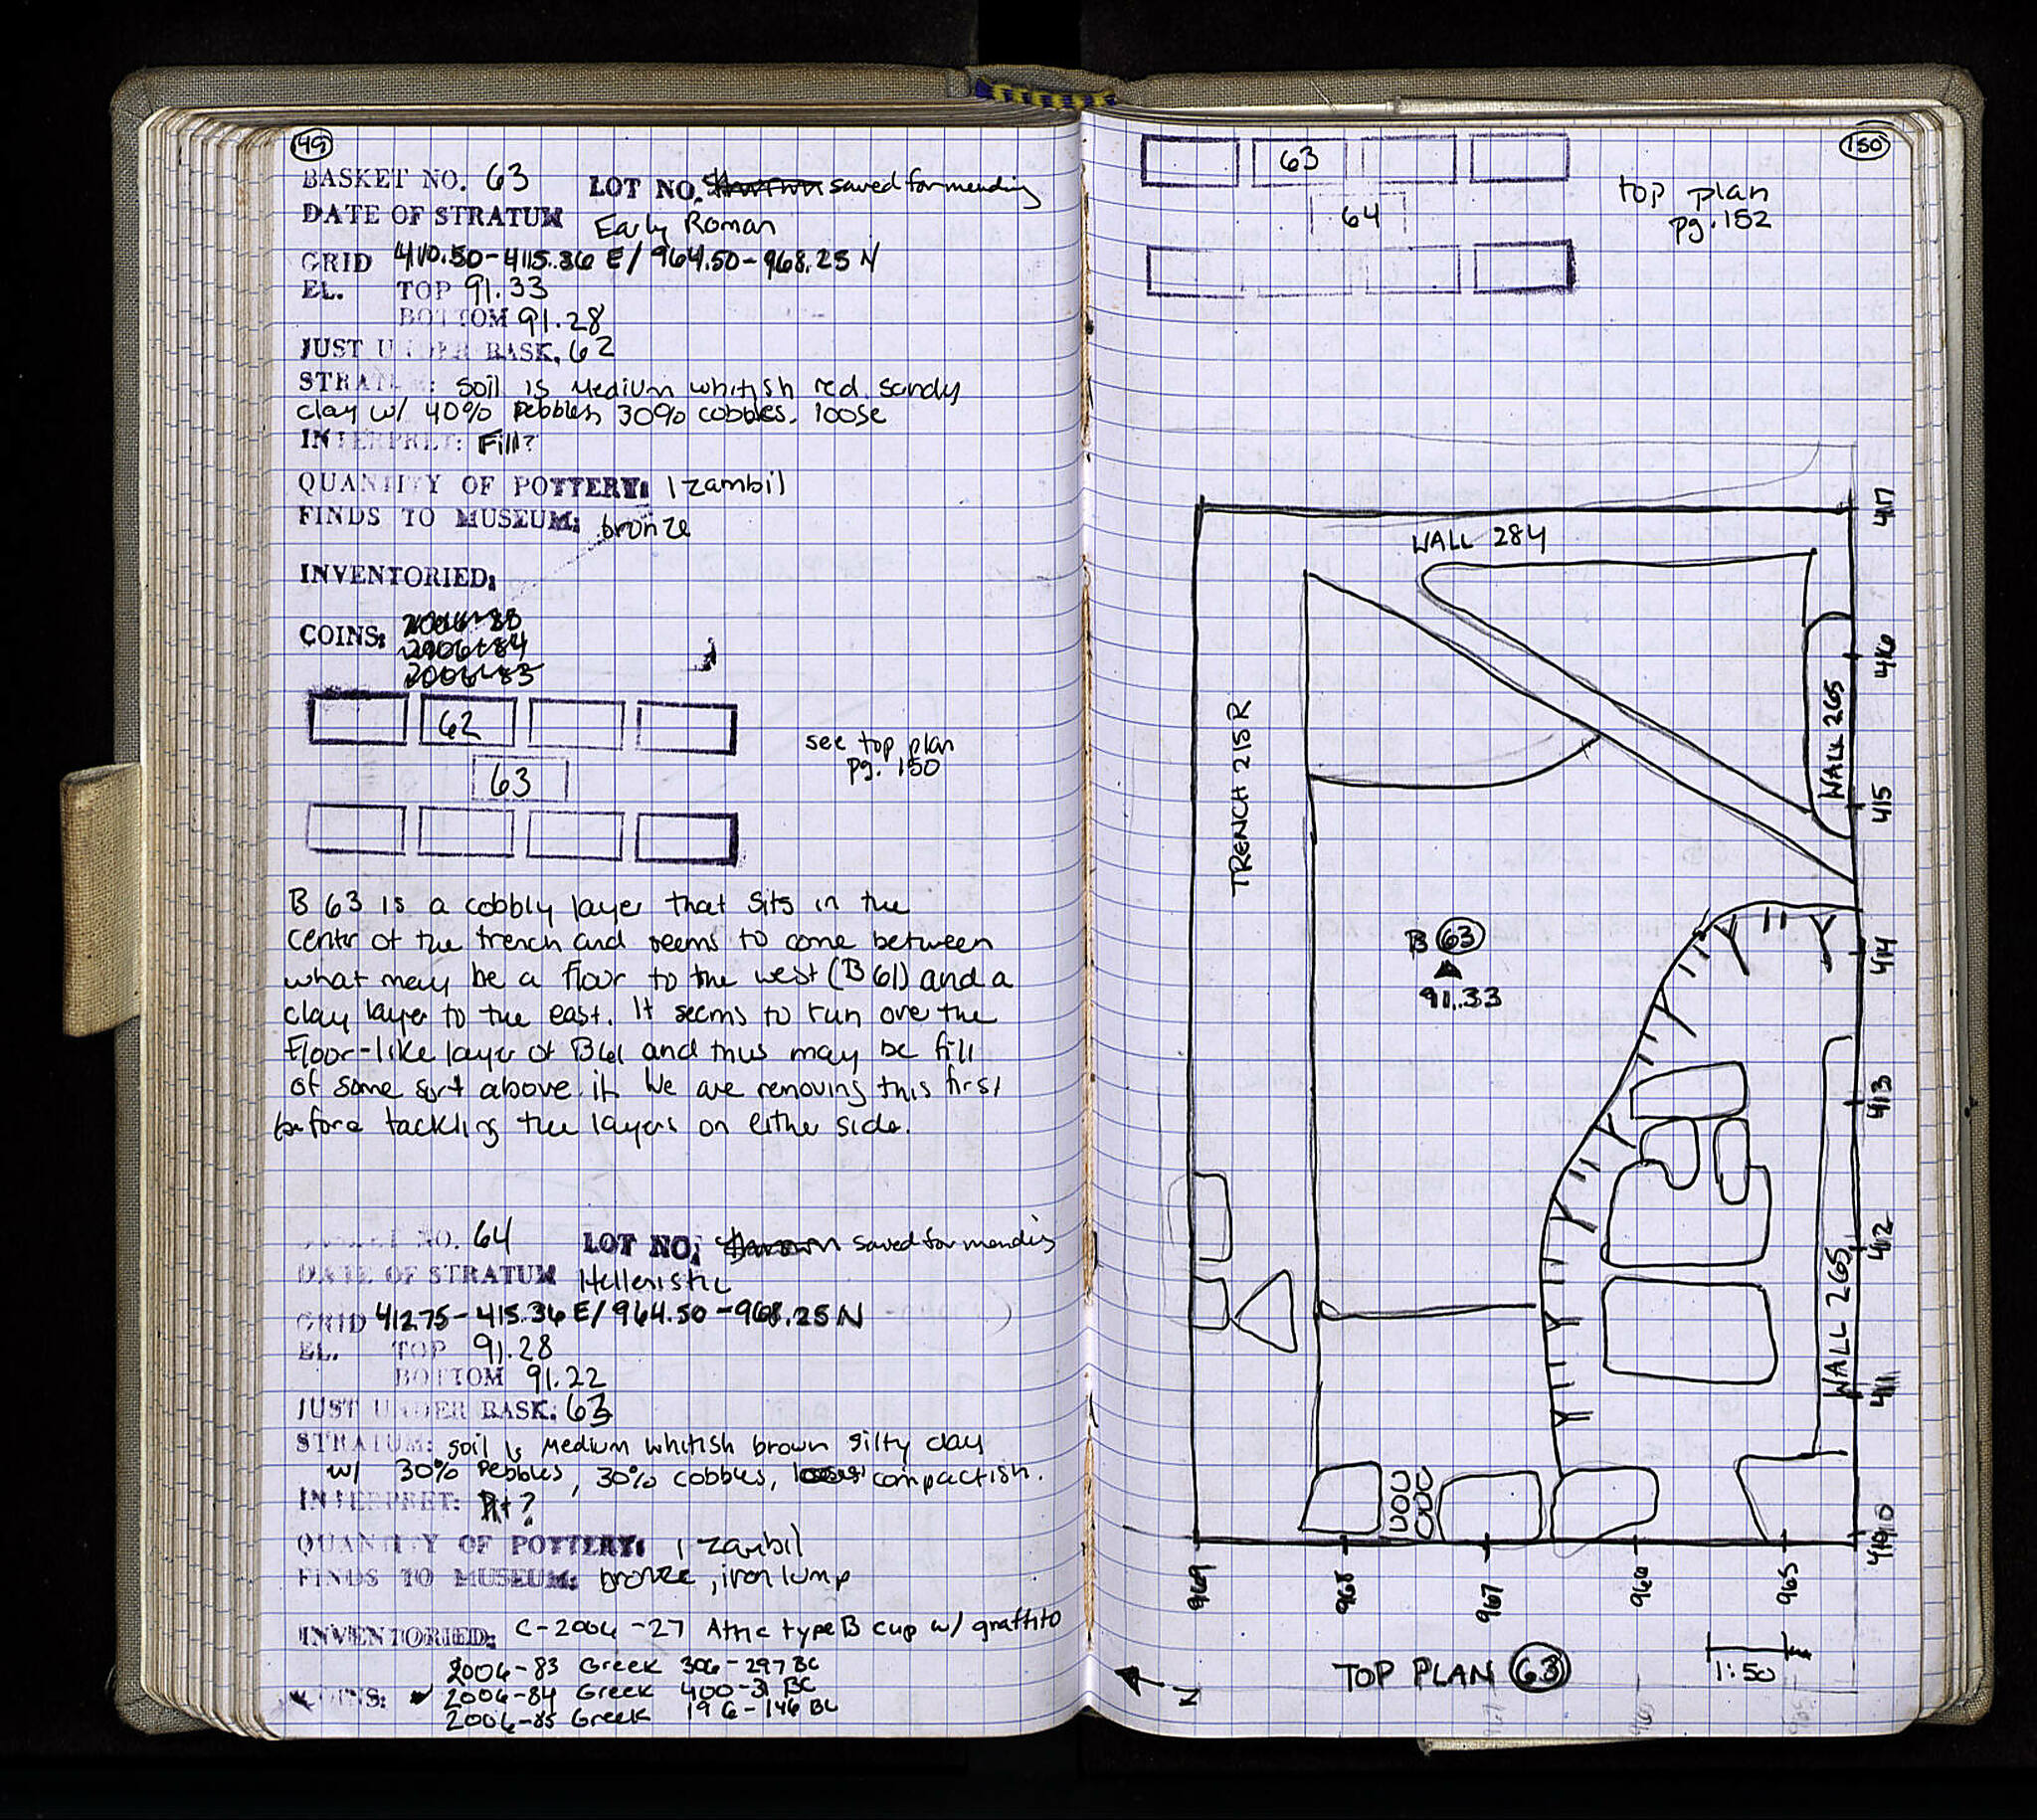 149
BASKET NO. 63 LOT NO. saved for mending
DATE OF STRATUM Early Roman
GRID 410.50-415.36 E/ 964.50-968.25 N
EL. TOP 91.33
BOTTOM 91.28
JUST UNDER BASK. 62
STRATUM: soil is medium whitish red sandy
clay w/ 40% pebbles 30% cobbles. loose
INTERPRET: Fill?
QUANTITY OF POTTERY: 1 zambil
FINDS TO MUSEUM: bronze
INVENTORIED:
COINS:
2006-84
2006-85
62
63
see top plan
pg. 150
B 63 is a cobbly layer that sits in the
center of the trench and seems to come between
what may be a floor to the west (B 61) and a
clay layer to the east. It seems to run over the
floor-like layer of B61 and thus may be fill
of some sort above it. We are removing this first
before tackling the layers on either side.
BASKET NO. 64 LOT NO. saved for mending
DATE OF STRATUM Hellenistic
GRID 412.75-415.36 E/ 964.50-968.25 N
EL. TOP 91.28
BOTTOM 91.22
JUST UNDER BASK: 63
STRATUM: soil is medium whitish brown silty clay
w/ 30% pebbles, 30% cobbles, compactish.
INTERPRET: Pit?
QUANTITY OF POTTERY: 1 zambil
FINDS TO MUSEUM: bronze, iron lump
INVENTORIED: C-2006-27 Attic type B cup w/ graffito
2006-83 Greek 306-297 BC
COINS: 2006-84 Greek 400-31 BC
2006-85 Greek 196-146 BC
150
63
64
top plan
pg. 152
WALL 284
417
416
415
414
413
412
411
410
TRENCH 215 R
WALL 265
B 63
91.33
WALL 265
969
968
967
966
965
N
TOP PLAN 63
1:50